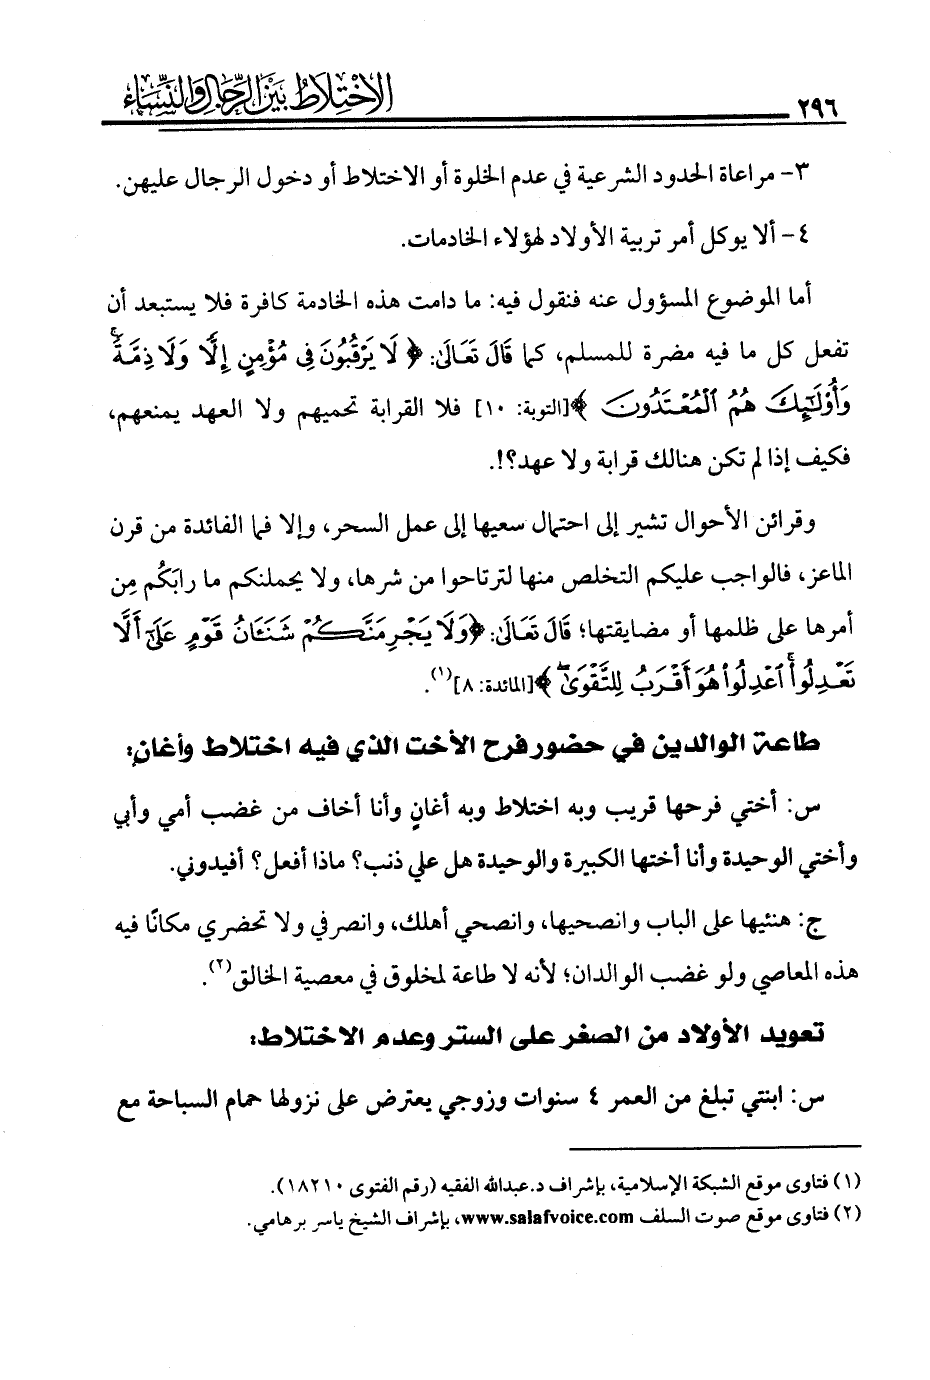 ٢٩٦
الاختلاط بين الرجال والنساء
٣- مراعاة الحدود الشرعية في عدم الخلوة أو الاختلاط أو دخول الرجال عليهن.
٤- ألا يوكل أمر تربية الأولاد لهؤلاء الخادمات.
أما الموضوع المسؤول عنه فنقول فيه: ما دامت هذه الخادمة كافرة فلا يستبعد أن
تفعل كل ما فيه مضرة للمسلم، كما قَالَ تَعَالَىٰ: ﴿ لَا يَرْقُبُونَ فِى مُؤْمِنٍ إِلًّا وَلَا ذِمَّةً ۚ
وَأُوْلَـٰٓئِكَ هُمُ ٱلْمُعْتَدُونَ ﴾[التوبة: ١٠] فلا القرابة تحميهم ولا العهد يمنعهم،
فكيف إذا لم تكن هنالك قرابة ولا عهد؟!.
وقرائن الأحوال تشير إلى احتمال سعيها إلى عمل السحر، وإلا فما الفائدة من قرن
الماعز، فالواجب عليكم التخلص منها لترتاحوا من شرها، ولا يحملنكم ما رابَكُم مِن
أمرها على ظلمها أو مضايقتها؛ قَالَ تَعَالَىٰ: ﴿وَلَا يَجْرِمَنَّكُمْ شَنَـَٔانُ قَوْمٍ عَلَىٰٓ أَلَّا
تَعْدِلُوا۟ ۚ ٱعْدِلُوا۟ هُوَ أَقْرَبُ لِلتَّقْوَىٰ ۖ ﴾[المائدة: ٨](١).
طاعة الوالدين في حضور فرح الأخت الذي فيه اختلاط وأغانٍ:
س: أختي فرحها قريب وبه اختلاط وبه أغانٍ وأنا أخاف من غضب أمي وأبي
وأختي الوحيدة وأنا أختها الكبيرة والوحيدة هل علي ذنب؟ ماذا أفعل؟ أفيدوني.
ج: هنئيها على الباب وانصحيها، وانصحي أهلك، وانصرفي ولا تحضري مكانًا فيه
هذه المعاصي ولو غضب الوالدان؛ لأنه لا طاعة لمخلوق في معصية الخالق(٢).
تعويد الأولاد من الصغر على الستر وعدم الاختلاط:
س: ابنتي تبلغ من العمر ٤ سنوات وزوجي يعترض على نزولها حمام السباحة مع
(١) فتاوى موقع الشبكة الإسلامية، بإشراف د.عبدالله الفقيه (رقم الفتوى ١٨٢١٠).
(٢) فتاوى موقع صوت السلف www.salafvoice.com، بإشراف الشيخ ياسر برهامي.